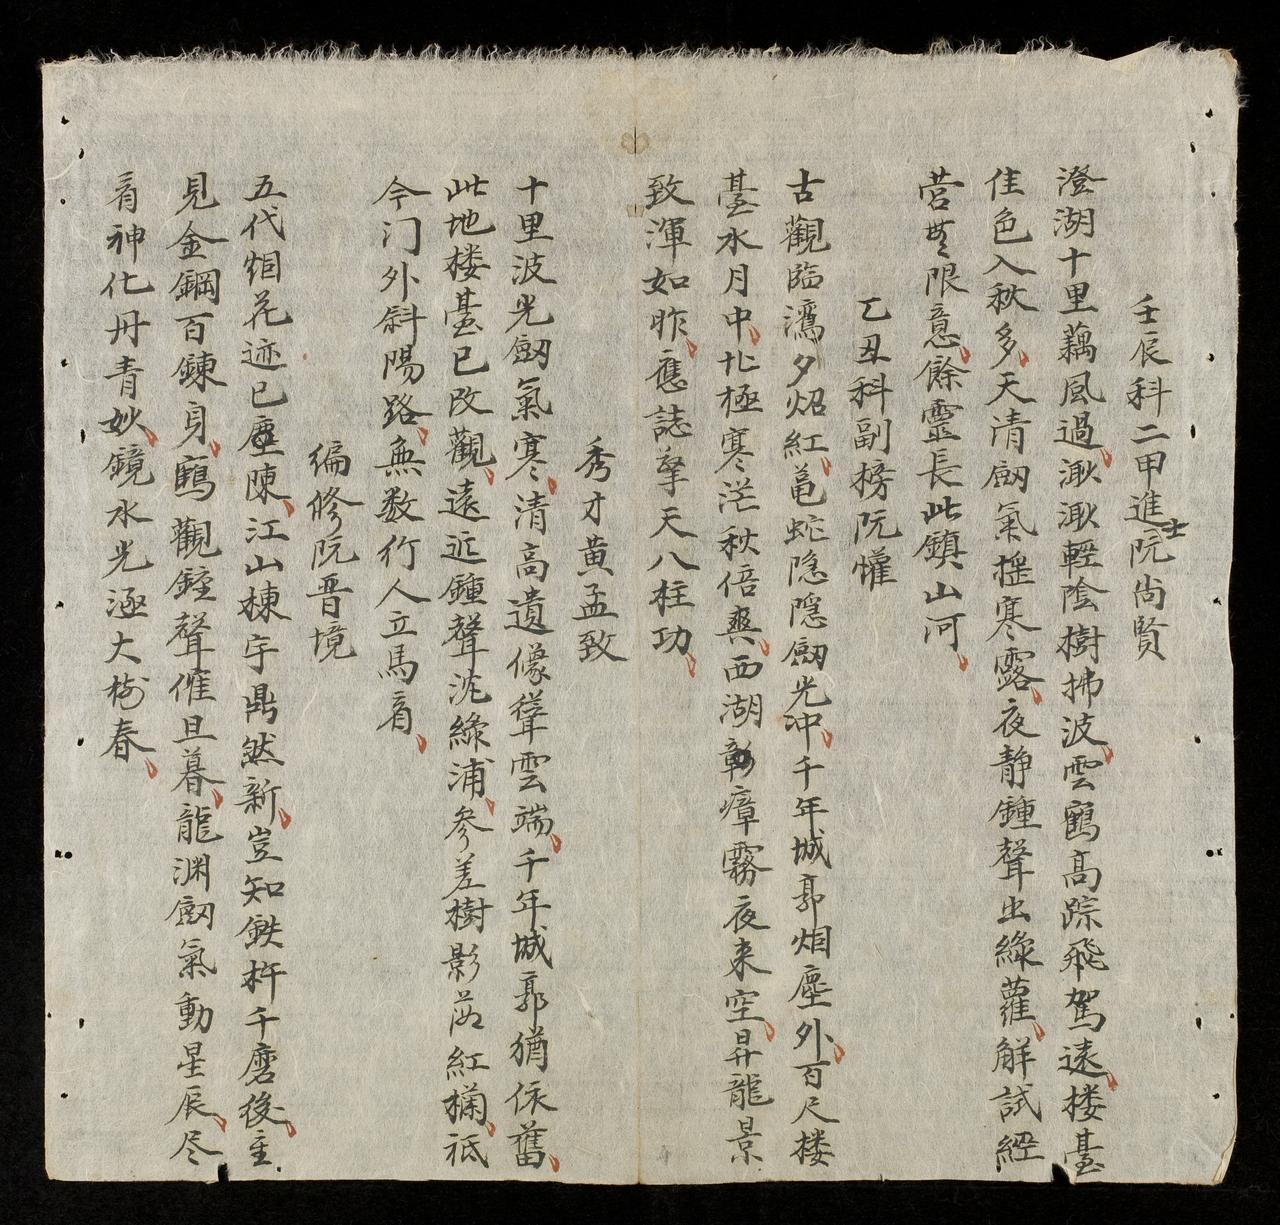 壬辰科二甲進士阮尚賢
澄湖十里藕風過浰浰輕陰樹拂波雲鶴高踪飛駕遠楼臺
佳色入秋多天清劔氣摇寒露夜静鍾聲出綠蘿解試經
营無限意餘靈長此鎮山河
乙丑科副榜阮懽
古觀臨瀉夕炤紅黾蛇隐隱劔光冲千年城郭烟塵外百尺楼
臺水月中北極寒茫秋倍爽西湖瘴霧夜来空昇龍景
致渾如昨應誌擎天八柱功
秀才黄孟致
十里波光劔氣寒清高遺像聳雲端千年城郭猶依舊
此地楼臺已改觀遠近鍾聲沈綠浦參差樹影蘸紅欄祗
今门外斜陽路無数行人立馬看
編修阮晋境
五代烟花迹已塵陳江山棟宇鼎然新豈知鉄杵千磨後重
見金鋼百鍊身鶴觀鐘聲催旦暮龍渊劔氣動星辰尽
看神化丹青妙鏡水光涵大地春